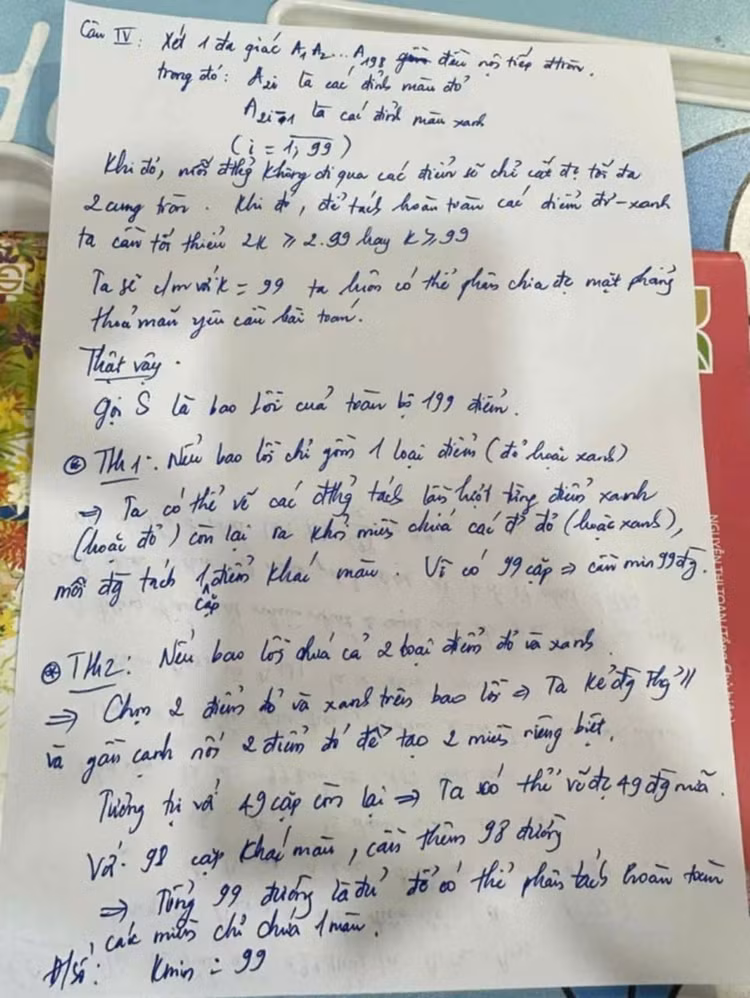 Câu IV: Xét 1 đa giác A₁A₂...A₁₉₈ đều nội tiếp đtròn.
trong đó: A₂ᵢ là các đỉnh màu đỏ
A₂ᵢ₋₁ là các đỉnh màu xanh
(i = 1,99)
Khi đó, mỗi đthg không đi qua các điểm sẽ chỉ cắt đc tối đa
2 cung tròn. Khi đó, để tách hoàn toàn các điểm đỏ-xanh
ta cần tối thiểu 2k ≥ 2.99 hay k ≥ 99
Ta sẽ c/m với k = 99 ta luôn có thể phân chia đc mặt phẳng
thoả mãn yêu cầu bài toán.
Thật vậy.
Gọi S là bao lồi của toàn bộ 199 điểm.
⊛ TH1: Nếu bao lồi chỉ gồm 1 loại điểm (đỏ hoặc xanh)
⇒ Ta có thể vẽ các đthg tách lần lượt từng điểm xanh
(hoặc đỏ) còn lại ra khỏi miền chứa các đ' đỏ (hoặc xanh),
mỗi đg tách 1 cặp điểm khác màu. Vì có 99 cặp ⇒ cần min 99 đg.
⊛ TH2: Nếu bao lồi chứa cả 2 loại điểm đỏ và xanh.
⇒ Chọn 2 điểm đỏ và xanh trên bao lồi ⇒ Ta kẻ đg thg //
và gần cạnh nối 2 điểm đó để tạo 2 miền riêng biệt.
Tương tự với 49 cặp còn lại ⇒ Ta có thể vẽ đc 49 đg nữa.
Với 98 cặp khác màu, cần thêm 98 đường
⇒ Tổng 99 đường là đủ để có thể phân tách hoàn toàn
các miền chỉ chứa 1 màu.
Đ/số: Kmin = 99